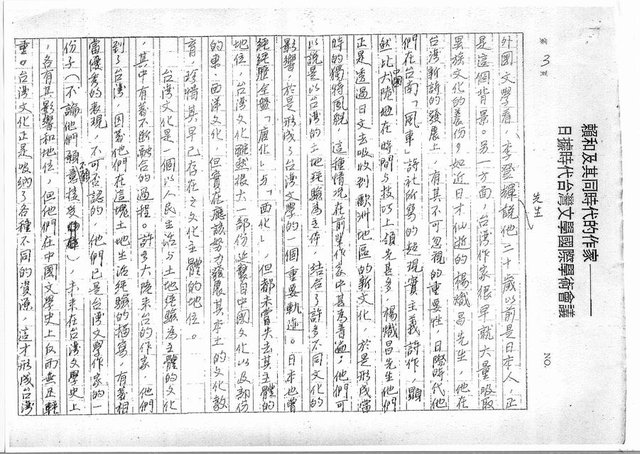 賴和及其同時代的作家——
日據時代台灣文學國際學術會議
第3頁
NO.
先生
外國文學看,李登輝說他二十歲以前是日本人,正
是這個背景。另一方面,台灣作家很早就大量吸取
異族文化的養份,如近日才仙逝的楊熾昌先生,他在
台灣新詩的發展上,有其不可忽視的重要性,日據時代他
們在台南「風車」詩社所寫的超現實主義詩作,顯
然比中國大陸還在時間與技巧上領先甚多,楊熾昌先生他們
正是透過日文去吸收到歐洲地區的新文化,於是形成當
時的獨特風貌,這種情況在前輩作家中甚為普遍,他們可
以說是以台灣的土地經驗為主體,結合了許多不同文化的
影響,於是形成了台灣文學的一個重要軌迹。日本也曾
經經歷全盤「唐化」與「西化」,但都未嘗失去其主體的
地位,台灣文化雖然很大一部份延襲自中國文化以及部份
的東、西洋文化,但實在應該努力發展其本土的文化教
育,珍惜其早已存在之文化主體的地位。
台灣文化是一個以人民生活與土地經驗為主體的文化
,其中有著不斷融合的過程。許多大陸來台的作家,他們
到了台灣,因為他們在這塊土地生活經驗的描寫,有著相
當優秀的表現,不可否認的,他們已是台灣文學作家的一
份子(不論他們願不願意接受),未來在台灣文學史上
,各有其影響和地位,但他們在中國文學史上反而無足輕
重。台灣文化正是吸納了各種不同的資源,這才形成台灣